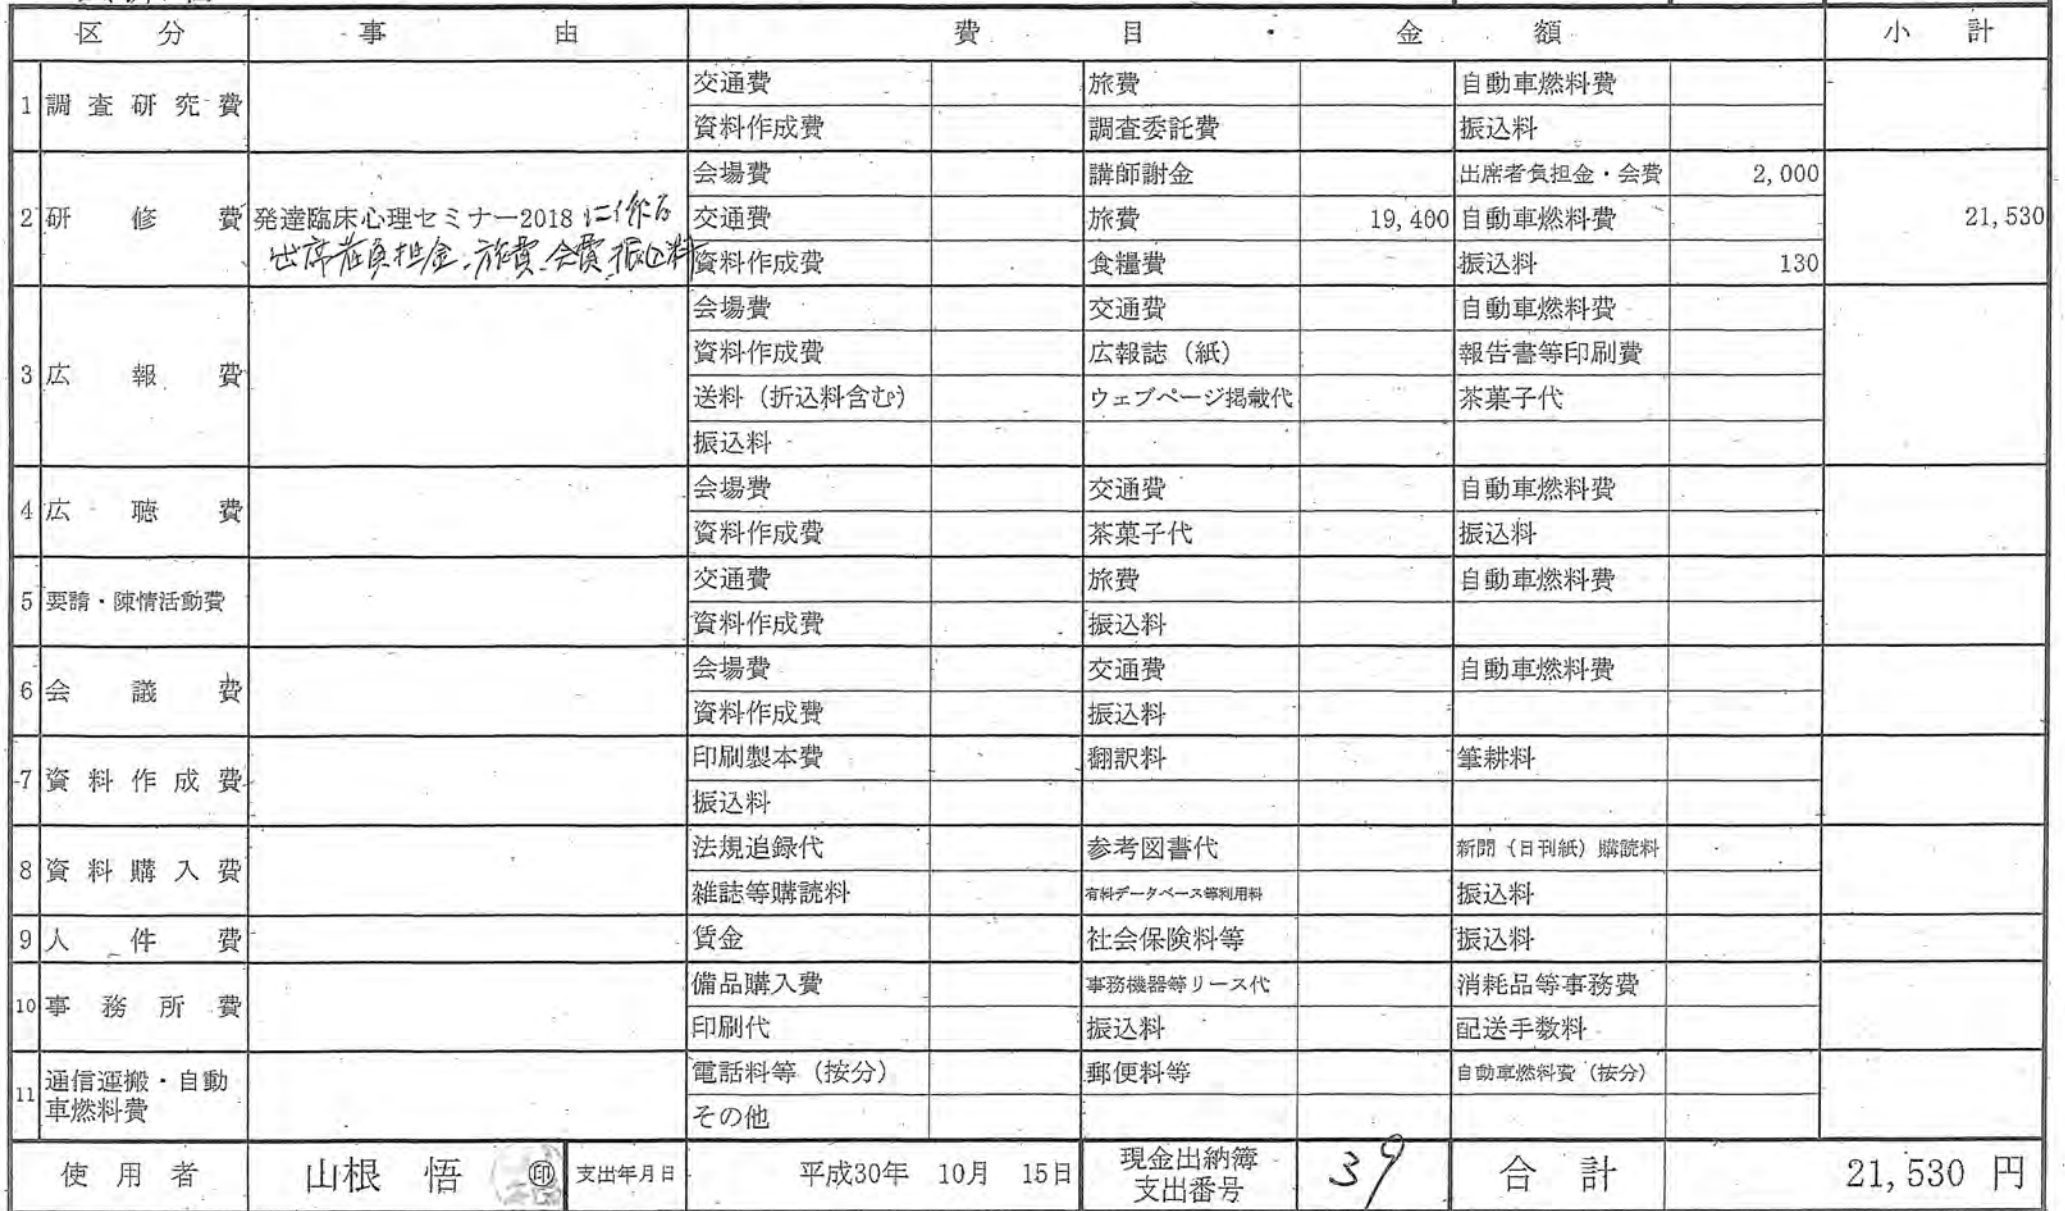 区分 事由 費目・金額 小計
1 調査研究費 交通費 旅費 自動車燃料費
資料作成費 調査委託費 振込料
会場費 講師謝金 出席者負担金・会費 2,000
2 研修費 発達臨床心理セミナー2018 に係る 交通費 旅費 19,400 自動車燃料費 21,530
出席者負担金、旅費、会費、振込料 資料作成費 食糧費 振込料 130
会場費 交通費 自動車燃料費
資料作成費 広報誌（紙） 報告書等印刷費
3 広報費 送料（折込料含む） ウェブページ掲載代 茶菓子代
振込料
4 広聴費 会場費 交通費 自動車燃料費
資料作成費 茶菓子代 振込料
5 要請・陳情活動費 交通費 旅費 自動車燃料費
資料作成費 振込料
6 会議費 会場費 交通費 自動車燃料費
資料作成費 振込料
7 資料作成費 印刷製本費 翻訳料 筆耕料
振込料
8 資料購入費 法規追録代 参考図書代 新聞（日刊紙）購読料
雑誌等購読料 有料データベース等利用料 振込料
9 人件費 賃金 社会保険料等 振込料
10 事務所費 備品購入費 事務機器等リース代 消耗品等事務費
印刷代 振込料 配送手数料
11 通信運搬・自動車燃料費 電話料等（按分） 郵便料等 自動車燃料費（按分）
その他
使用者 山根 悟 ㊞ 支出年月日 平成30年 10月 15日 現金出納簿支出番号 39 合計 21,530 円